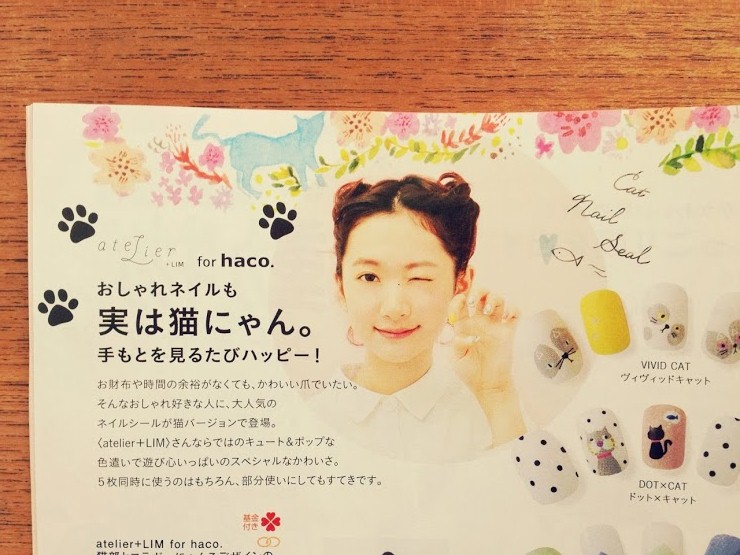 Cat
Nail
Seal
atelier
+LIM
for haco.
おしゃれネイルも
実は猫にゃん。
手もとを見るたびハッピー！
お財布や時間の余裕がなくても、かわいい爪でいたい。
そんなおしゃれ好きな人に、大人気の
ネイルシールが猫バージョンで登場。
〈atelier+LIM〉さんならではのキュート&ポップな
色遣いで遊び心いっぱいのスペシャルなかわいさ。
5枚同時に使うのはもちろん、部分使いにしてもすてきです。
VIVID CAT
ヴィヴィッドキャット
DOT×CAT
ドット×キャット
基金
付き
atelier+LIM for haco.